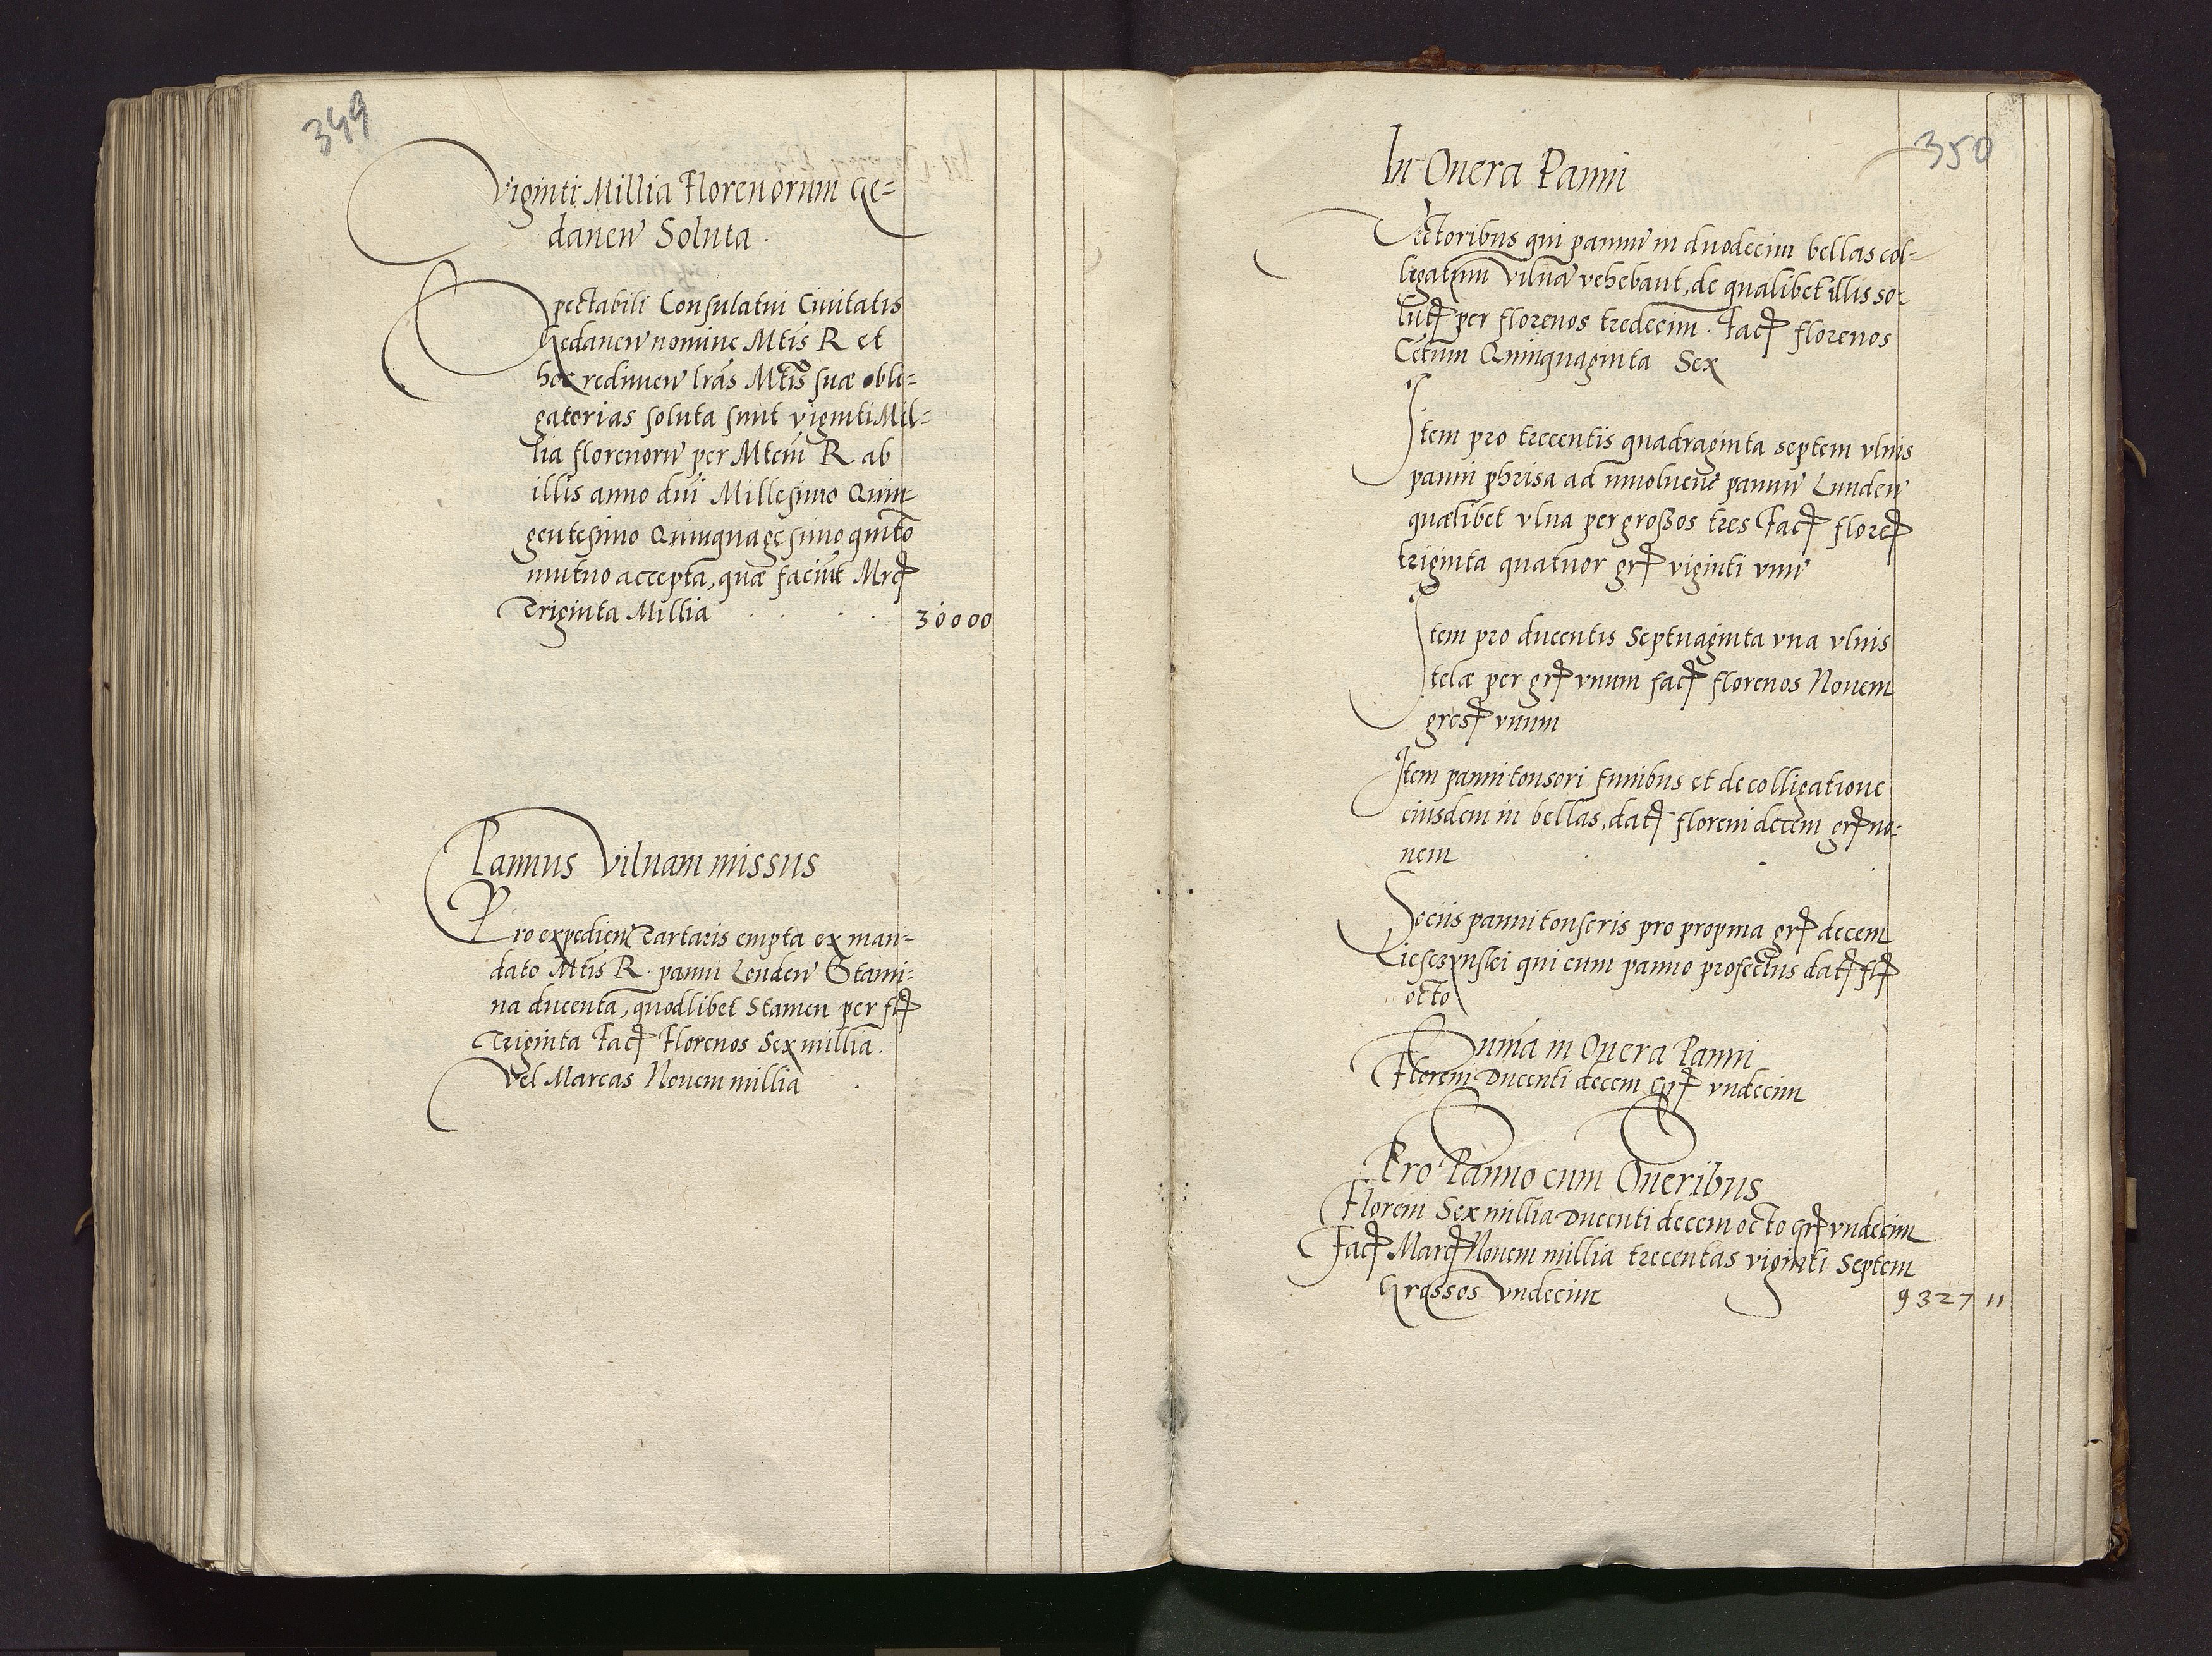 349
Viginti Millia Florenorum Ge=
danen Soluta.
Spectabili Consulatui Ciuitatis
Gedanen nomine Mtis R et
hoc redimen lras Mtis suæ obli=
gatorias soluta sunt viginti Mil=
lia florenorū per Mtem R ab
illis anno dni Millesimo Quin=
gentesimo Quinquagesimo quinto
mutuo accepta, quæ faciūt Mrc
Triginta Millia . . . 30000
Pannus Vilnam missus
Pro expedien Tartaris empta ex man=
dato Mtis R. panni Londen Stami=
na ducenta, quodlibet Stamen per fl
Triginta Fac Florenos Sex millia.
Vel Marcas Nouem millia .
350
In Onera Panni
Vectoribus qui pannū in duodecim bellas col=
ligatum Vilnā vehebant, de qualibet illis so=
lut per florenos tredecim. Fac florenos
Cētum Quinquaginta Sex
Item pro trecentis quadraginta septem vlnis
panni phrisa ad inuoluen pannū Lunden
quælibet vlna per grossos tres Fac flore
triginta quatuor gr viginti vnū
Item pro ducentis Septuaginta vna vlnis
telæ per gr vnum fac florenos Nouem
gros vnum
Item panni tonsori funibus et de colligatione
eiusdem in bellas, dat floreni decem gr no=
uem
Sociis panni tonsoris pro propina gr decem
qui cum panno profectus dat fl
octo
Suma in Onera Panni
Floreni Ducenti decem octo gr vndecim
Pro Panno cum Oneribus
Floreni Sex millia Ducenti decem octo gr vndecim
Fac Marc Nouem millia trecentas viginti Septem
Grossos Vndecim 9327 11